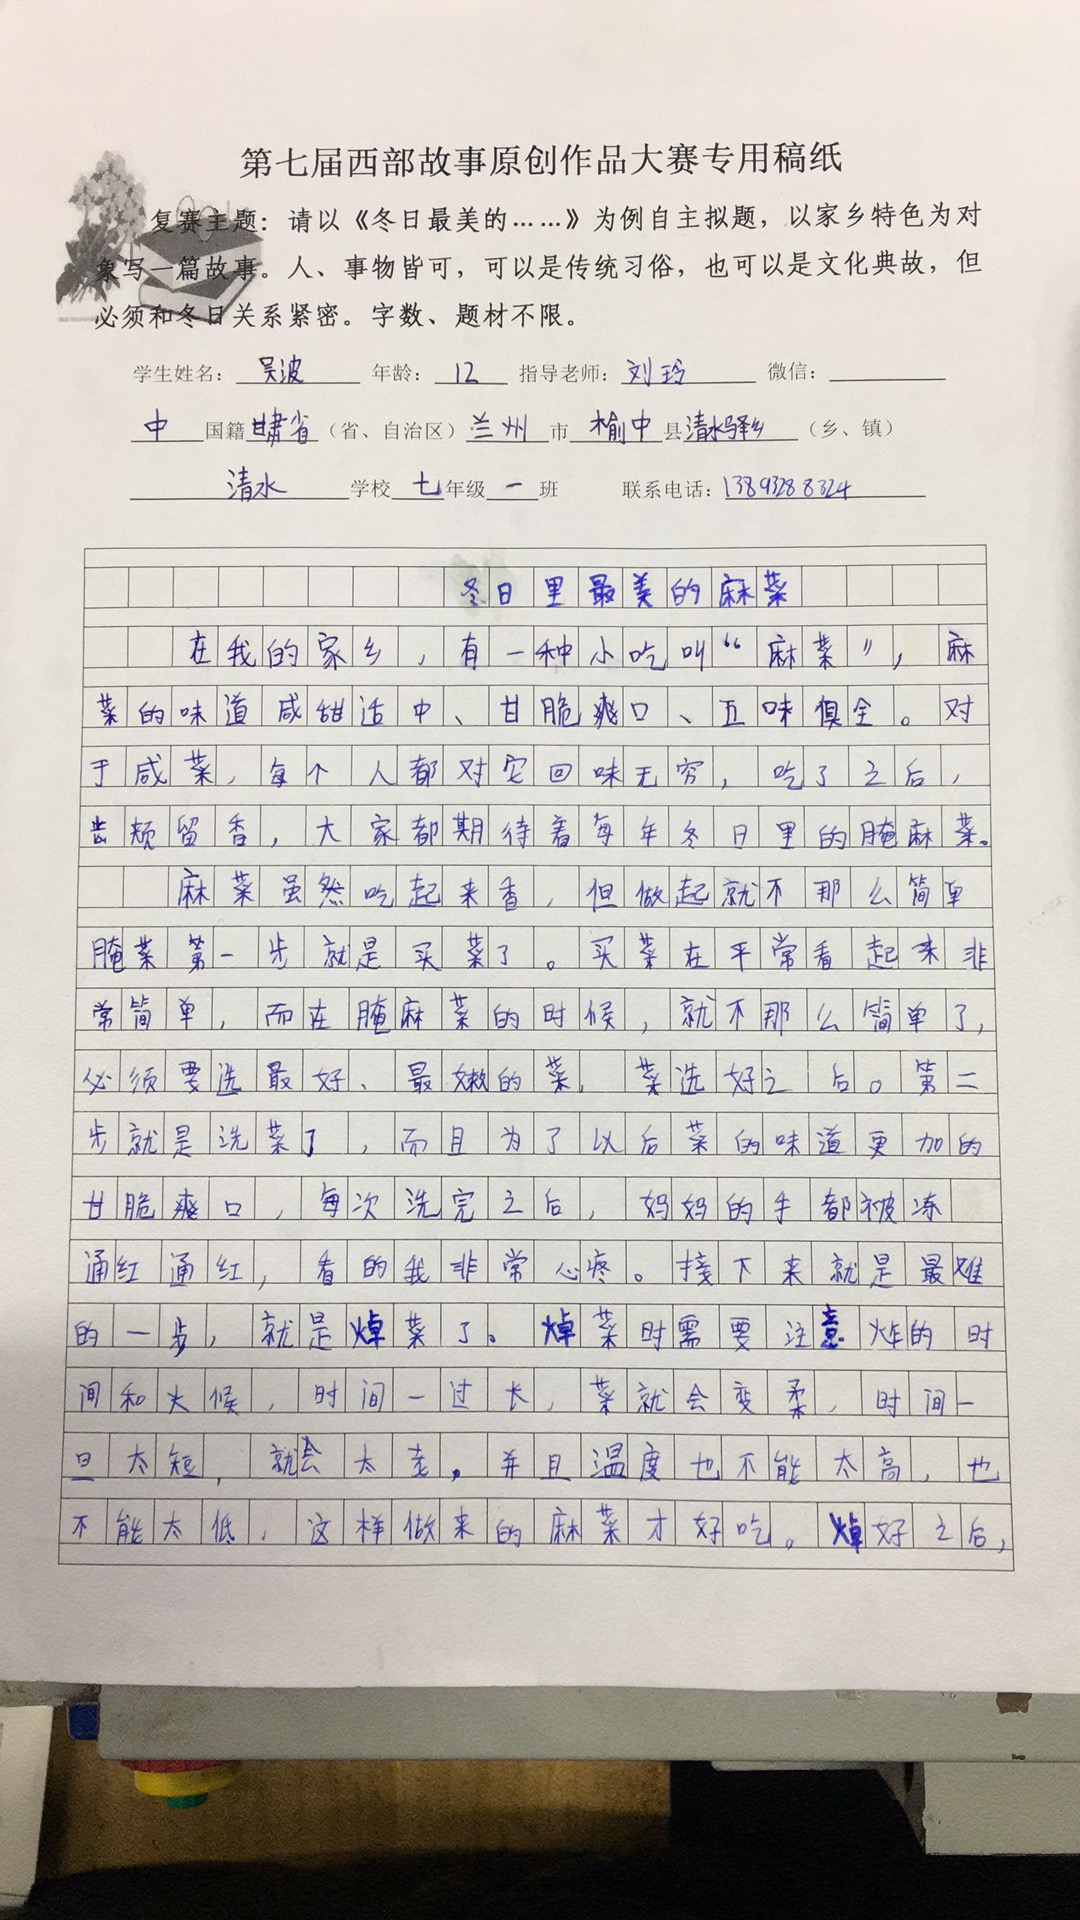 第七届西部故事原创作品大赛专用稿纸
复赛主题：请以《冬日最美的……》为例自主拟题，以家乡特色为对
象写一篇故事。人、事物皆可，可以是传统习俗，也可以是文化典故，但
必须和冬日关系紧密。字数、题材不限。
学生姓名：吴波 年龄：12 指导老师：刘玲 微信：
中国籍甘肃省（省、自治区）兰州市榆中县清水驿乡（乡、镇）
清水学校七年级一班 联系电话：13893288324
冬日里最美的麻菜
在我的家乡，有一种小吃叫“麻菜”，麻
菜的味道咸甜适中、甘脆爽口、五味俱全。对
于咸菜，每个人都对它回味无穷，吃了之后，
齿颊留香，大家都期待着每年冬日里的腌麻菜。
麻菜虽然吃起来香，但做起就不那么简单
腌菜第一步就是买菜了。买菜在平常看起来非
常简单，而在腌麻菜的时候，就不那么简单了，
必须要选最好、最嫩的菜，菜选好之后。第二
步就是洗菜了，而且为了以后菜的味道更加的
甘脆爽口，每次洗完之后，妈妈的手都被冻
通红通红，看的我非常心疼。接下来就是最难
的一步，就是焯菜了。焯菜时需要注意炸的时
间和火候，时间一过长，菜就会变柔，时间一
旦太短，就会太老，并且温度也不能太高，也
不能太低，这样做来的麻菜才好吃。焯好之后，